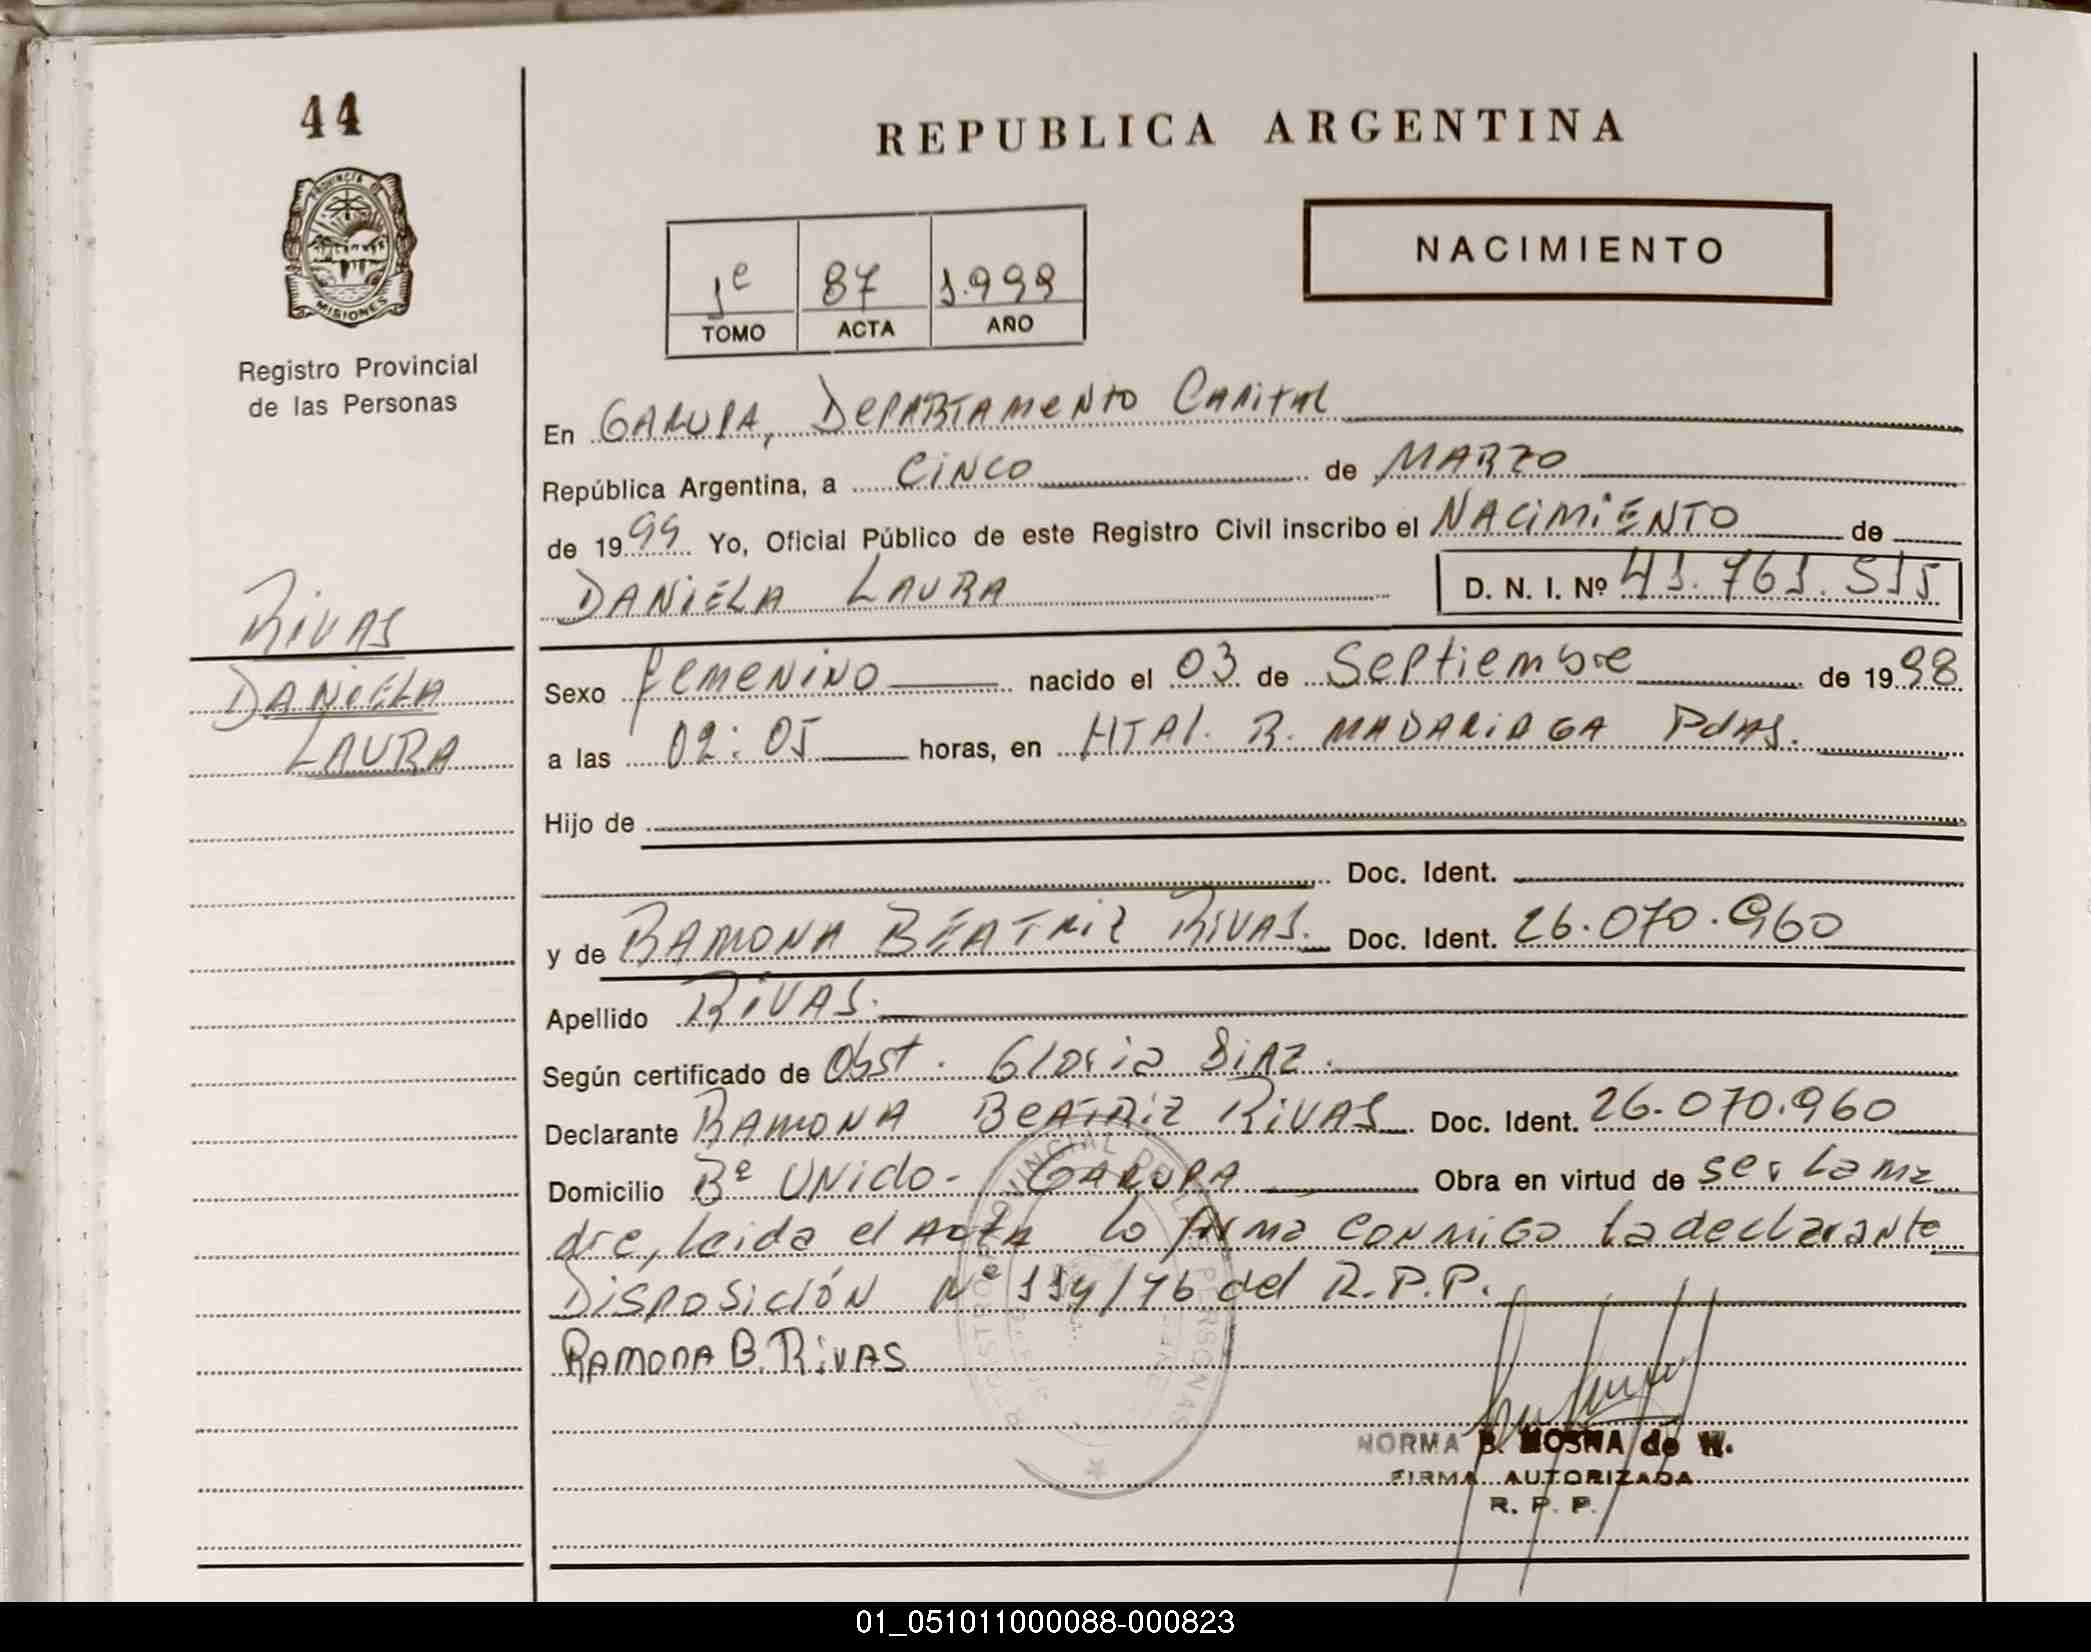 44
REPUBLICA ARGENTINA
PROVINCIA DE
MISIONES
NACIMIENTO
1º 87 1.999
TOMO ACTA AÑO
Registro Provincial
de las Personas
En GARUPA, DEPARTAMENTO CAPITAL
República Argentina, a CINCO de MARZO
de 1999 Yo, Oficial Público de este Registro Civil inscribo el NACIMIENTO de
DANIELA LAURA D. N. I. Nº 41.761.515
RIVAS
DANIELA
LAURA
Sexo femenino nacido el 03 de Septiembre de 1998
a las 02:05 horas, en HTAl. R. MADARIAGA Pdas.
Hijo de
Doc. Ident.
y de RAMONA BEATRIZ RIVAS. Doc. Ident. 26.070.960
Apellido RIVAS.
Según certificado de Obst. Gloria DIAZ.
Declarante RAMONA BEATRIZ RIVAS Doc. Ident. 26.070.960
Domicilio Bº UNido - GARUPA Obra en virtud de ser la ma
dre, leida el Acta lo firma conmigo la declarante
Disposición Nº 114/76 del R.P.P.
RAMONA B. RIVAS
NORMA B. MOSNA de W.
FIRMA AUTORIZADA
R. P. P.
01_051011000088-000823